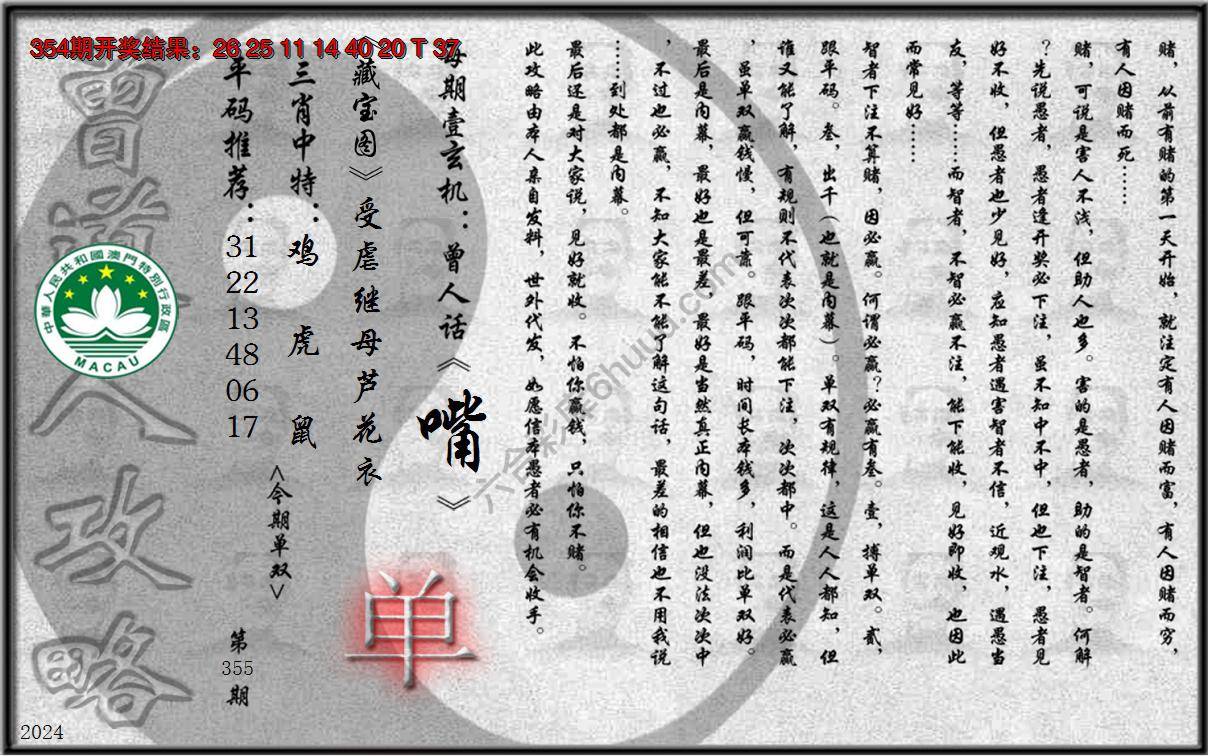 354期开奖结果：26 25 11 14 40 20 T 37
赌，从前有赌的第一天开始，就注定有人因赌而富，有人因赌而穷，
有人因赌而死……
赌，可说是害人不浅，但助人也多。害的是愚者，助的是智者。何解
？先说愚者，愚者逢开奖必下注，虽不知中不中，但也下注，愚者见
好不收，但愚者也少见好，应知愚者遇害智者不信，近观水，遇愚当
友，等等……而智者，不智必赢不注，能下能收，见好即收，也因此
而常见好……
智者下注不算赌，因必赢。何谓必赢？必赢有叁。壹，搏单双。贰，
跟平码。叁，出千（也就是内幕）。单双有规律，这是人人都知，但
谁又能了解，有规则不代表次次都能下注，次次都中。而是代表必赢
，虽单双赢钱慢，但可靠。跟平码，时间长本钱多，利润比单双好。
最后是内幕，最好也是最差，最好是当然真正内幕，但也没法次次中
，不过也必赢，不知大家能不能了解这句话，最差的相信也不用我说
……到处都是内幕。
最后还是对大家说，见好就收。不怕你赢钱，只怕你不赌。
此攻略由本人亲自发料，世外代发，如愿信本愚者必有机会收手。
每期壹玄机：曾人话《嘴》
《藏宝图》受虐继母芦花衣
三肖中特：鸡 虎 鼠
平码推荐：31 22 13 48 06 17
<今期单双>
单
第355期
曾道人攻略
中華人民共和國澳門特別行政區
MACAU
六合彩库6huuu.com
2024